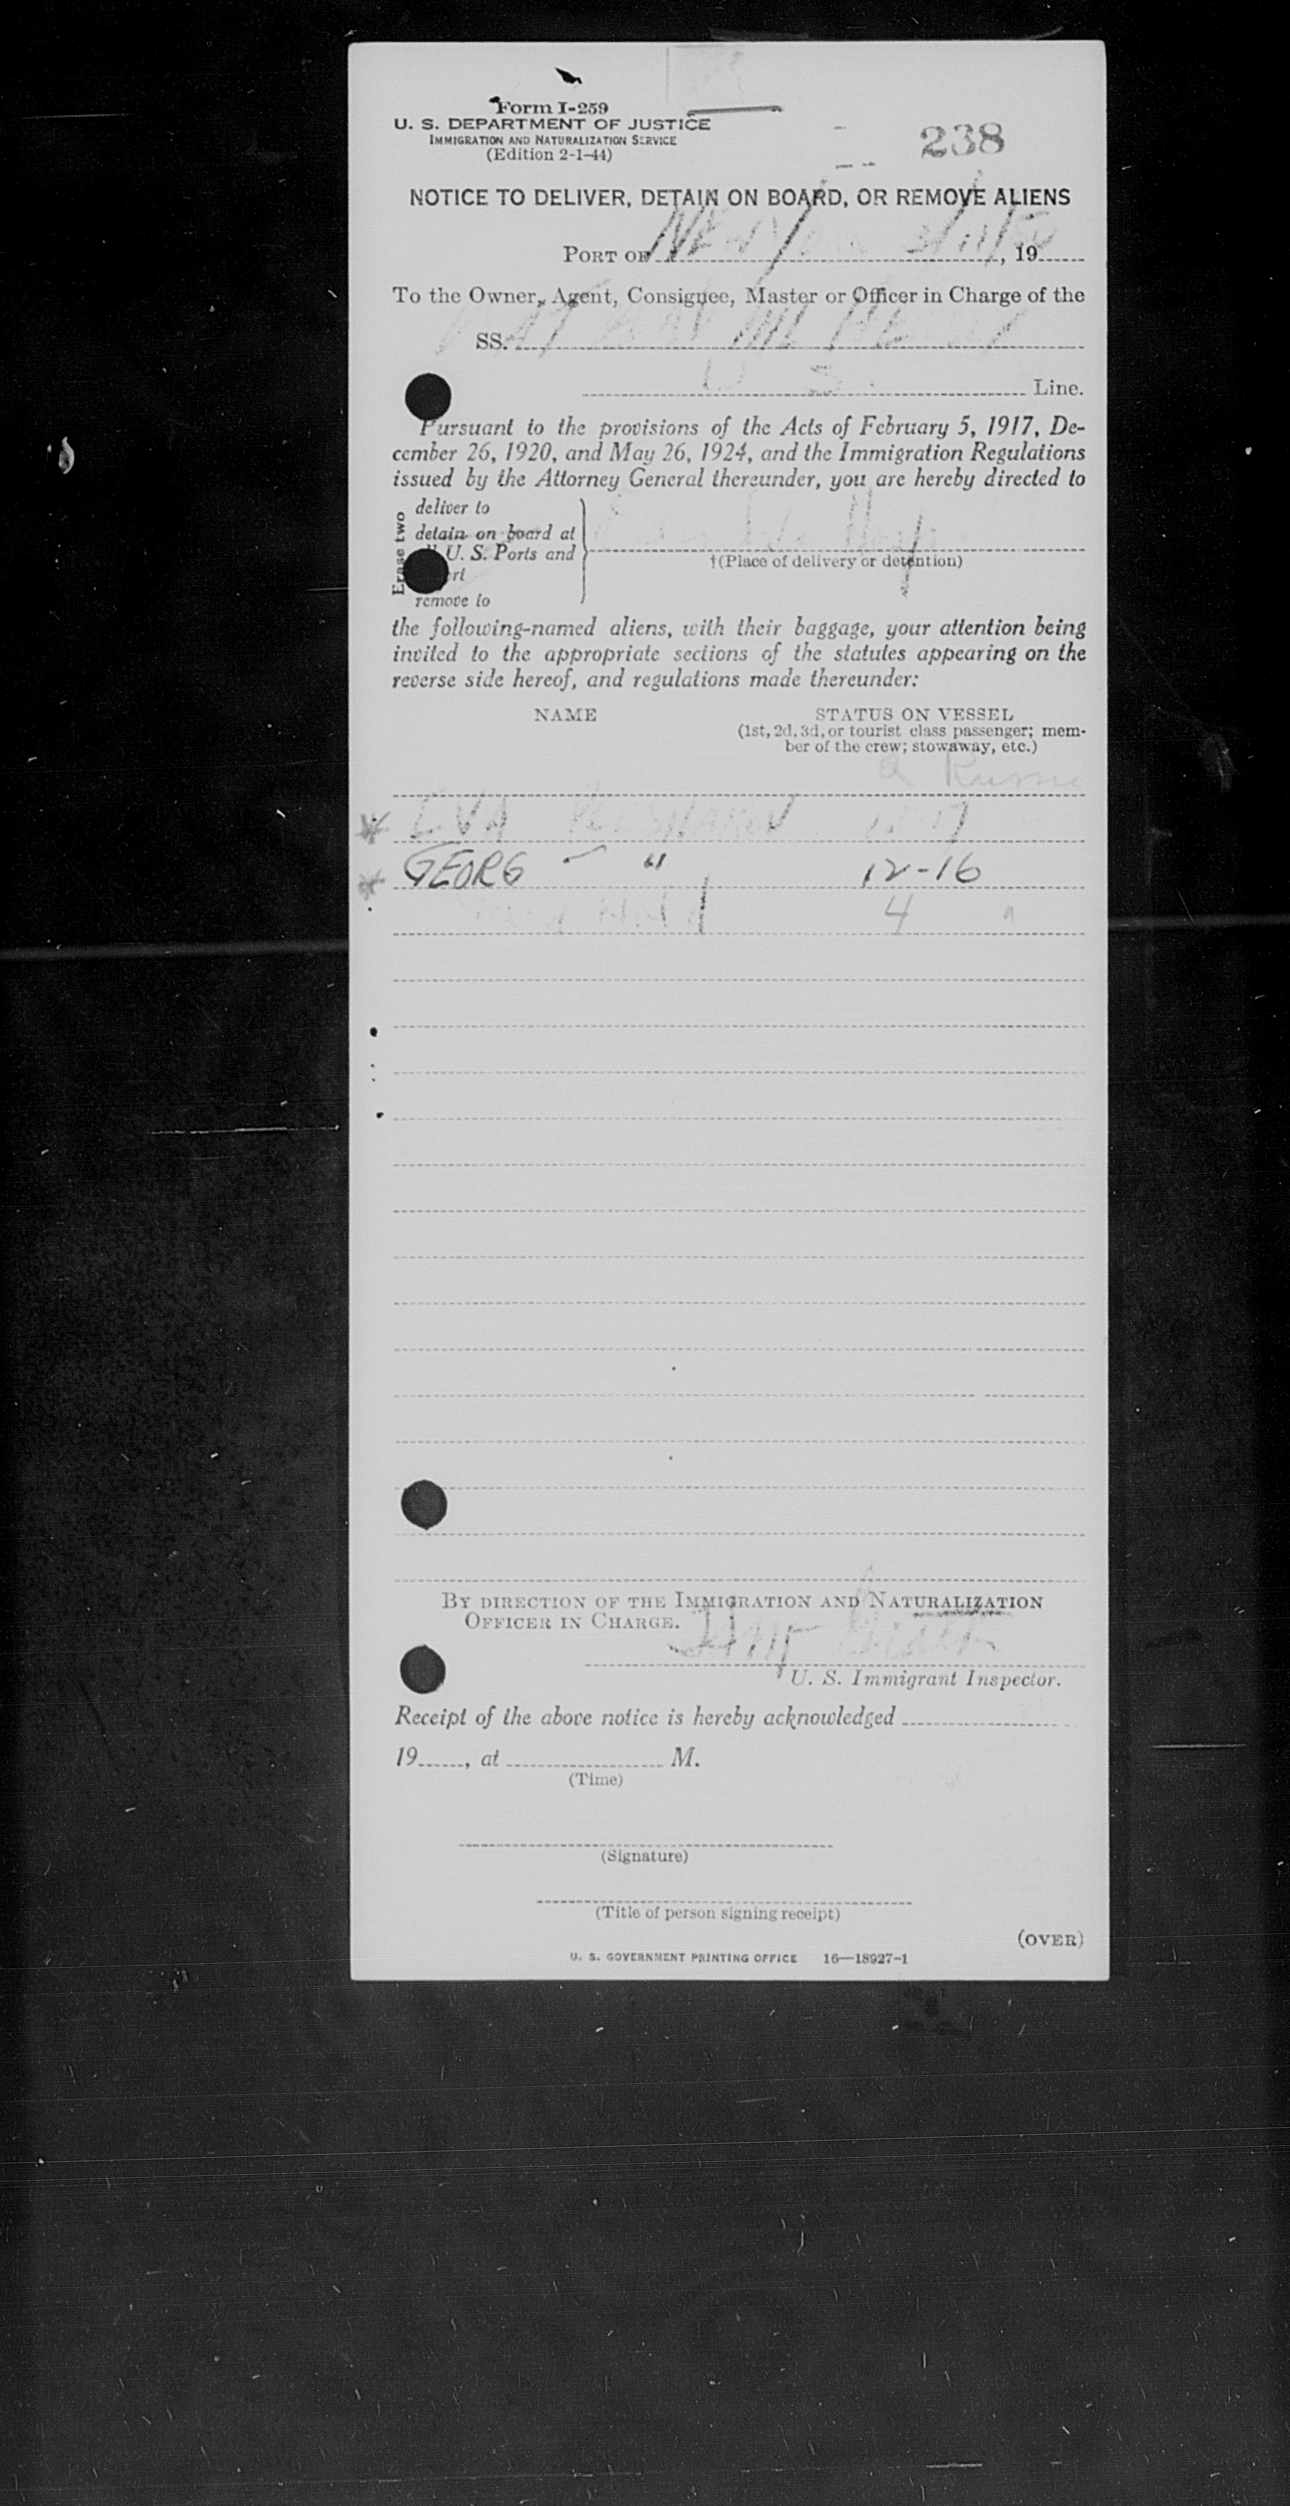 Form I-259
U. S. DEPARTMENT OF JUSTICE
IMMIGRATION AND NATURALIZATION SERVICE
(Edition 2-1-44)
238
NOTICE TO DELIVER, DETAIN ON BOARD, OR REMOVE ALIENS
PORT OF New York, 19
To the Owner, Agent, Consignee, Master or Officer in Charge of the
SS.
U S. Line.
Pursuant to the provisions of the Acts of February 5, 1917, De-
cember 26, 1920, and May 26, 1924, and the Immigration Regulations
issued by the Attorney General thereunder, you are hereby directed to
Erase two
deliver to
detain on board at
U. S. Ports and
remove to
†(Place of delivery or detention)
the following-named aliens, with their baggage, your attention being
invited to the appropriate sections of the statutes appearing on the
reverse side hereof, and regulations made thereunder:
NAME STATUS ON VESSEL
(1st, 2d, 3d, or tourist class passenger; mem-
ber of the crew; stowaway, etc.)
EVA
GEORG - " 12-16
4
BY DIRECTION OF THE IMMIGRATION AND NATURALIZATION
OFFICER IN CHARGE.
U. S. Immigrant Inspector.
Receipt of the above notice is hereby acknowledged
19, at M.
(Time)
(Signature)
(Title of person signing receipt)
(OVER)
U. S. GOVERNMENT PRINTING OFFICE 16—18927-1